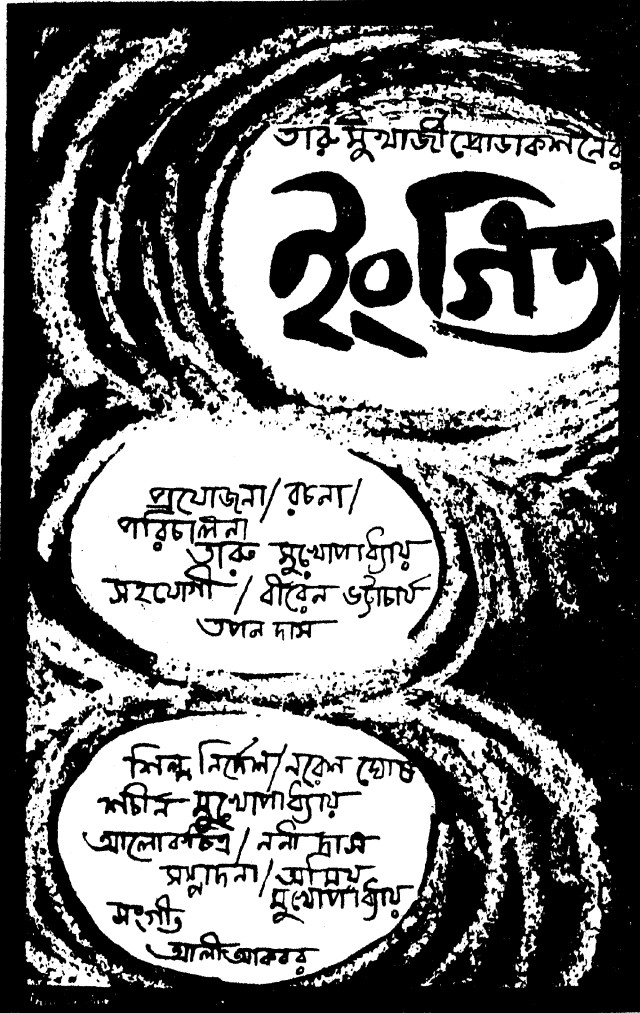 তারু মুখার্জী প্রোডাকশনের
ইংগিত
প্রযোজনা / রচনা /
পরিচালনা
তারু মুখোপাধ্যায়
সহযোগী / বীরেন ভট্টাচার্য
তপন দাস
শিল্প নির্দেশ / নরেন ঘোষ
শচীন মুখোপাধ্যায়
আলোকচিত্র / ননী দাস
সম্পাদনা / অমিয়
মুখোপাধ্যায়
সংগীত
আলী আকবর